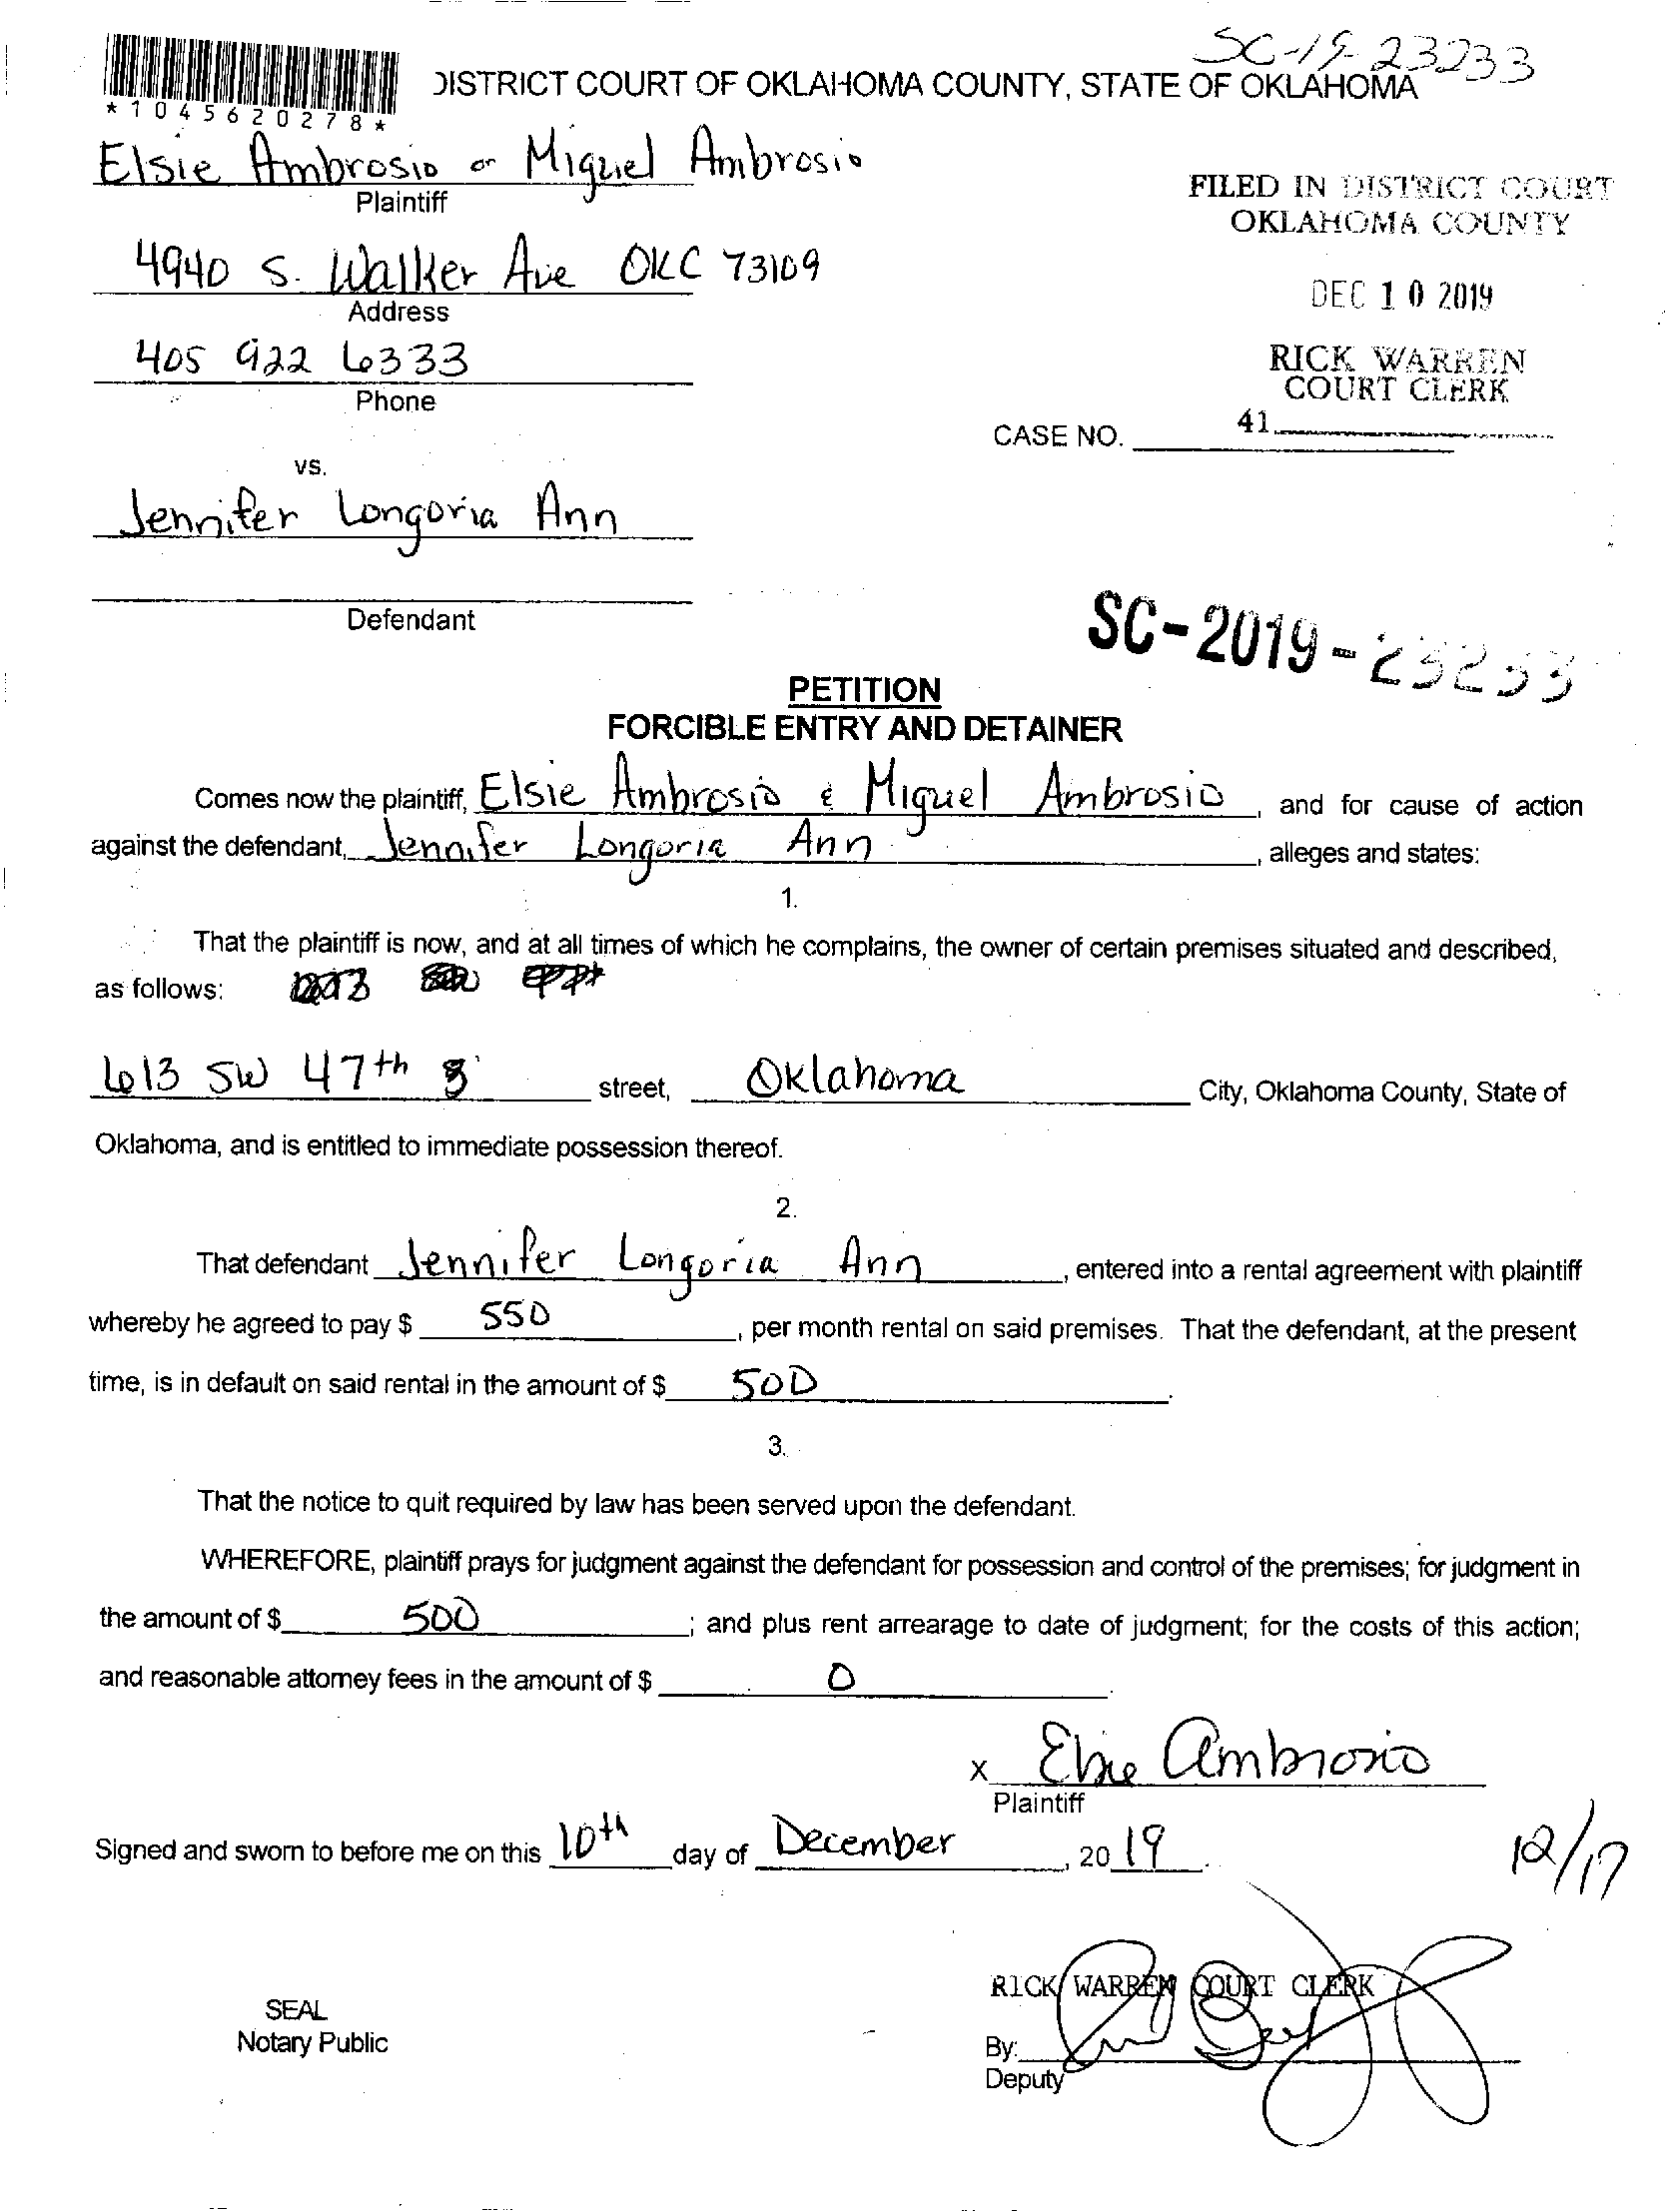 SC-19-23233
DISTRICT COURT OF OKLAHOMA COUNTY, STATE OF OKLAHOMA
*1045620278*
Elsie Ambrosio or Miguel Ambrosio
Plaintiff
FILED IN DISTRICT COURT
OKLAHOMA COUNTY
4940 S. Walker Ave OKC 73109
Address
DEC 10 2019
405 922 6333
Phone
RICK WARREN
COURT CLERK
41
CASE NO.
vs.
Jennifer Longoria Ann
Defendant
SC-2019-23233
PETITION
FORCIBLE ENTRY AND DETAINER
Comes now the plaintiff, Elsie Ambrosio & Miguel Ambrosio, and for cause of action
against the defendant, Jennifer Longoria Ann, alleges and states:
1.
That the plaintiff is now, and at all times of which he complains, the owner of certain premises situated and described,
as follows:
613 SW 47th street, Oklahoma City, Oklahoma County, State of
Oklahoma, and is entitled to immediate possession thereof.
2.
That defendant Jennifer Longoria Ann, entered into a rental agreement with plaintiff
whereby he agreed to pay $ 550, per month rental on said premises. That the defendant, at the present
time, is in default on said rental in the amount of $ 500.
3.
That the notice to quit required by law has been served upon the defendant.
WHEREFORE, plaintiff prays for judgment against the defendant for possession and control of the premises; for judgment in
the amount of $ 500; and plus rent arrearage to date of judgment; for the costs of this action;
and reasonable attorney fees in the amount of $ 0.
x Elsie Ambrosio
Plaintiff
Signed and sworn to before me on this 10th day of December, 2019.
12/17
RICK WARREN COURT CLERK
SEAL
Notary Public
By:
Deputy